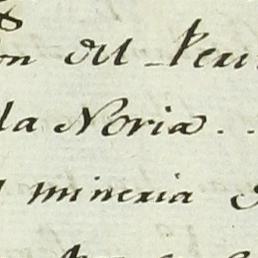 on del Peru
la Noria . .
mineria